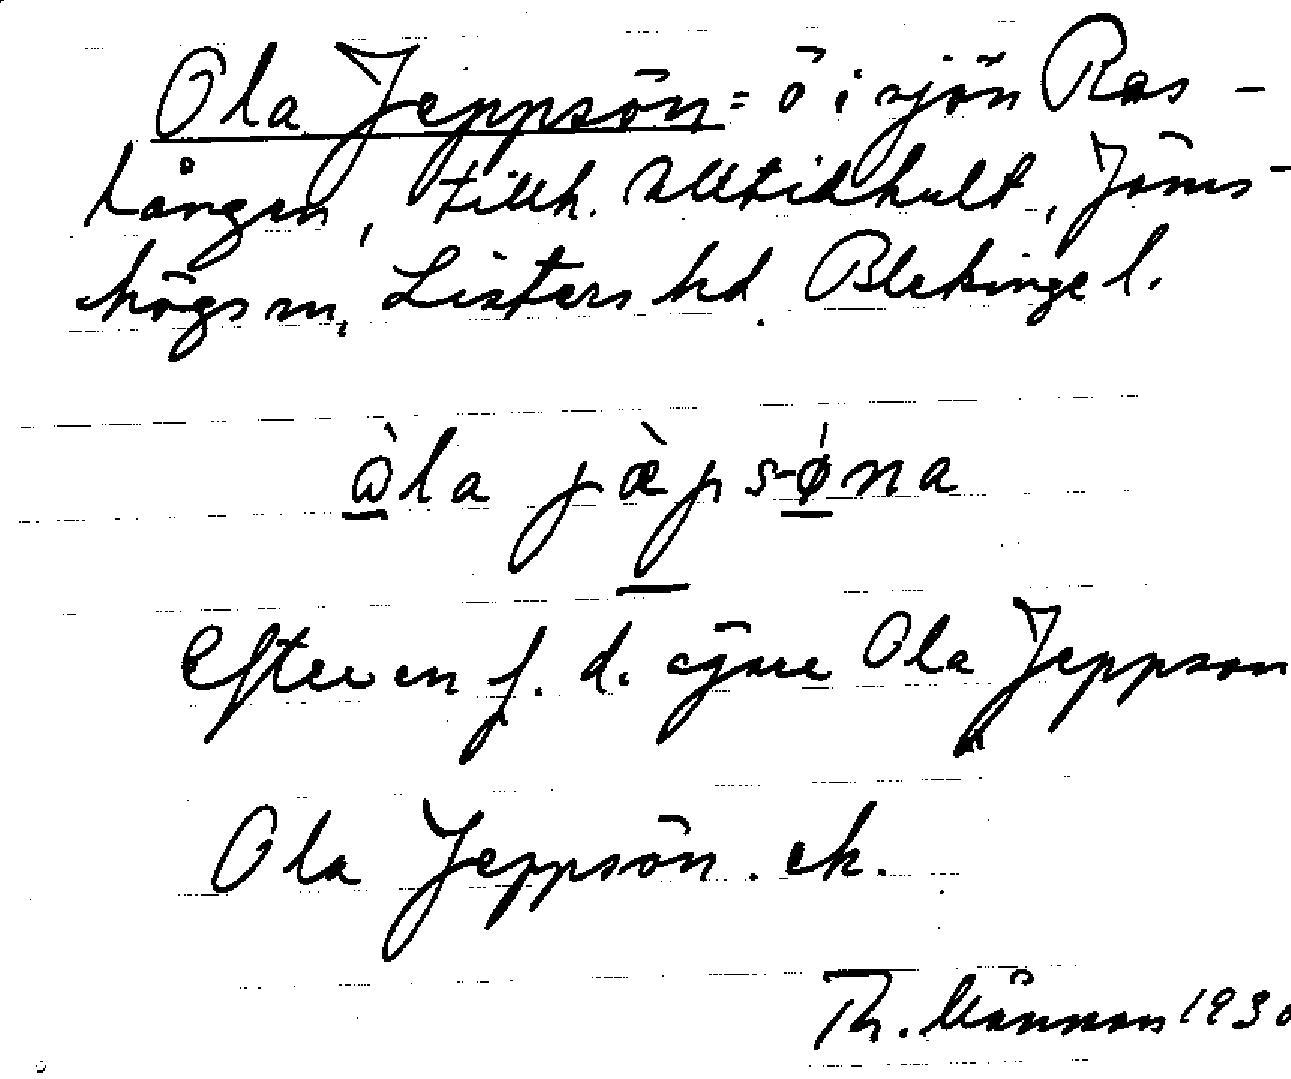 Ola Jeppsön = ö i sjön Ras-
lången, tillh. Alltidhult, Jäms-
högs sn, Listers hd. Blekinge l.
òla jæ̀psǿna
Efter en f. d. ägare Ola Jeppson
Ola Jeppsön. ek.
Th. 1930